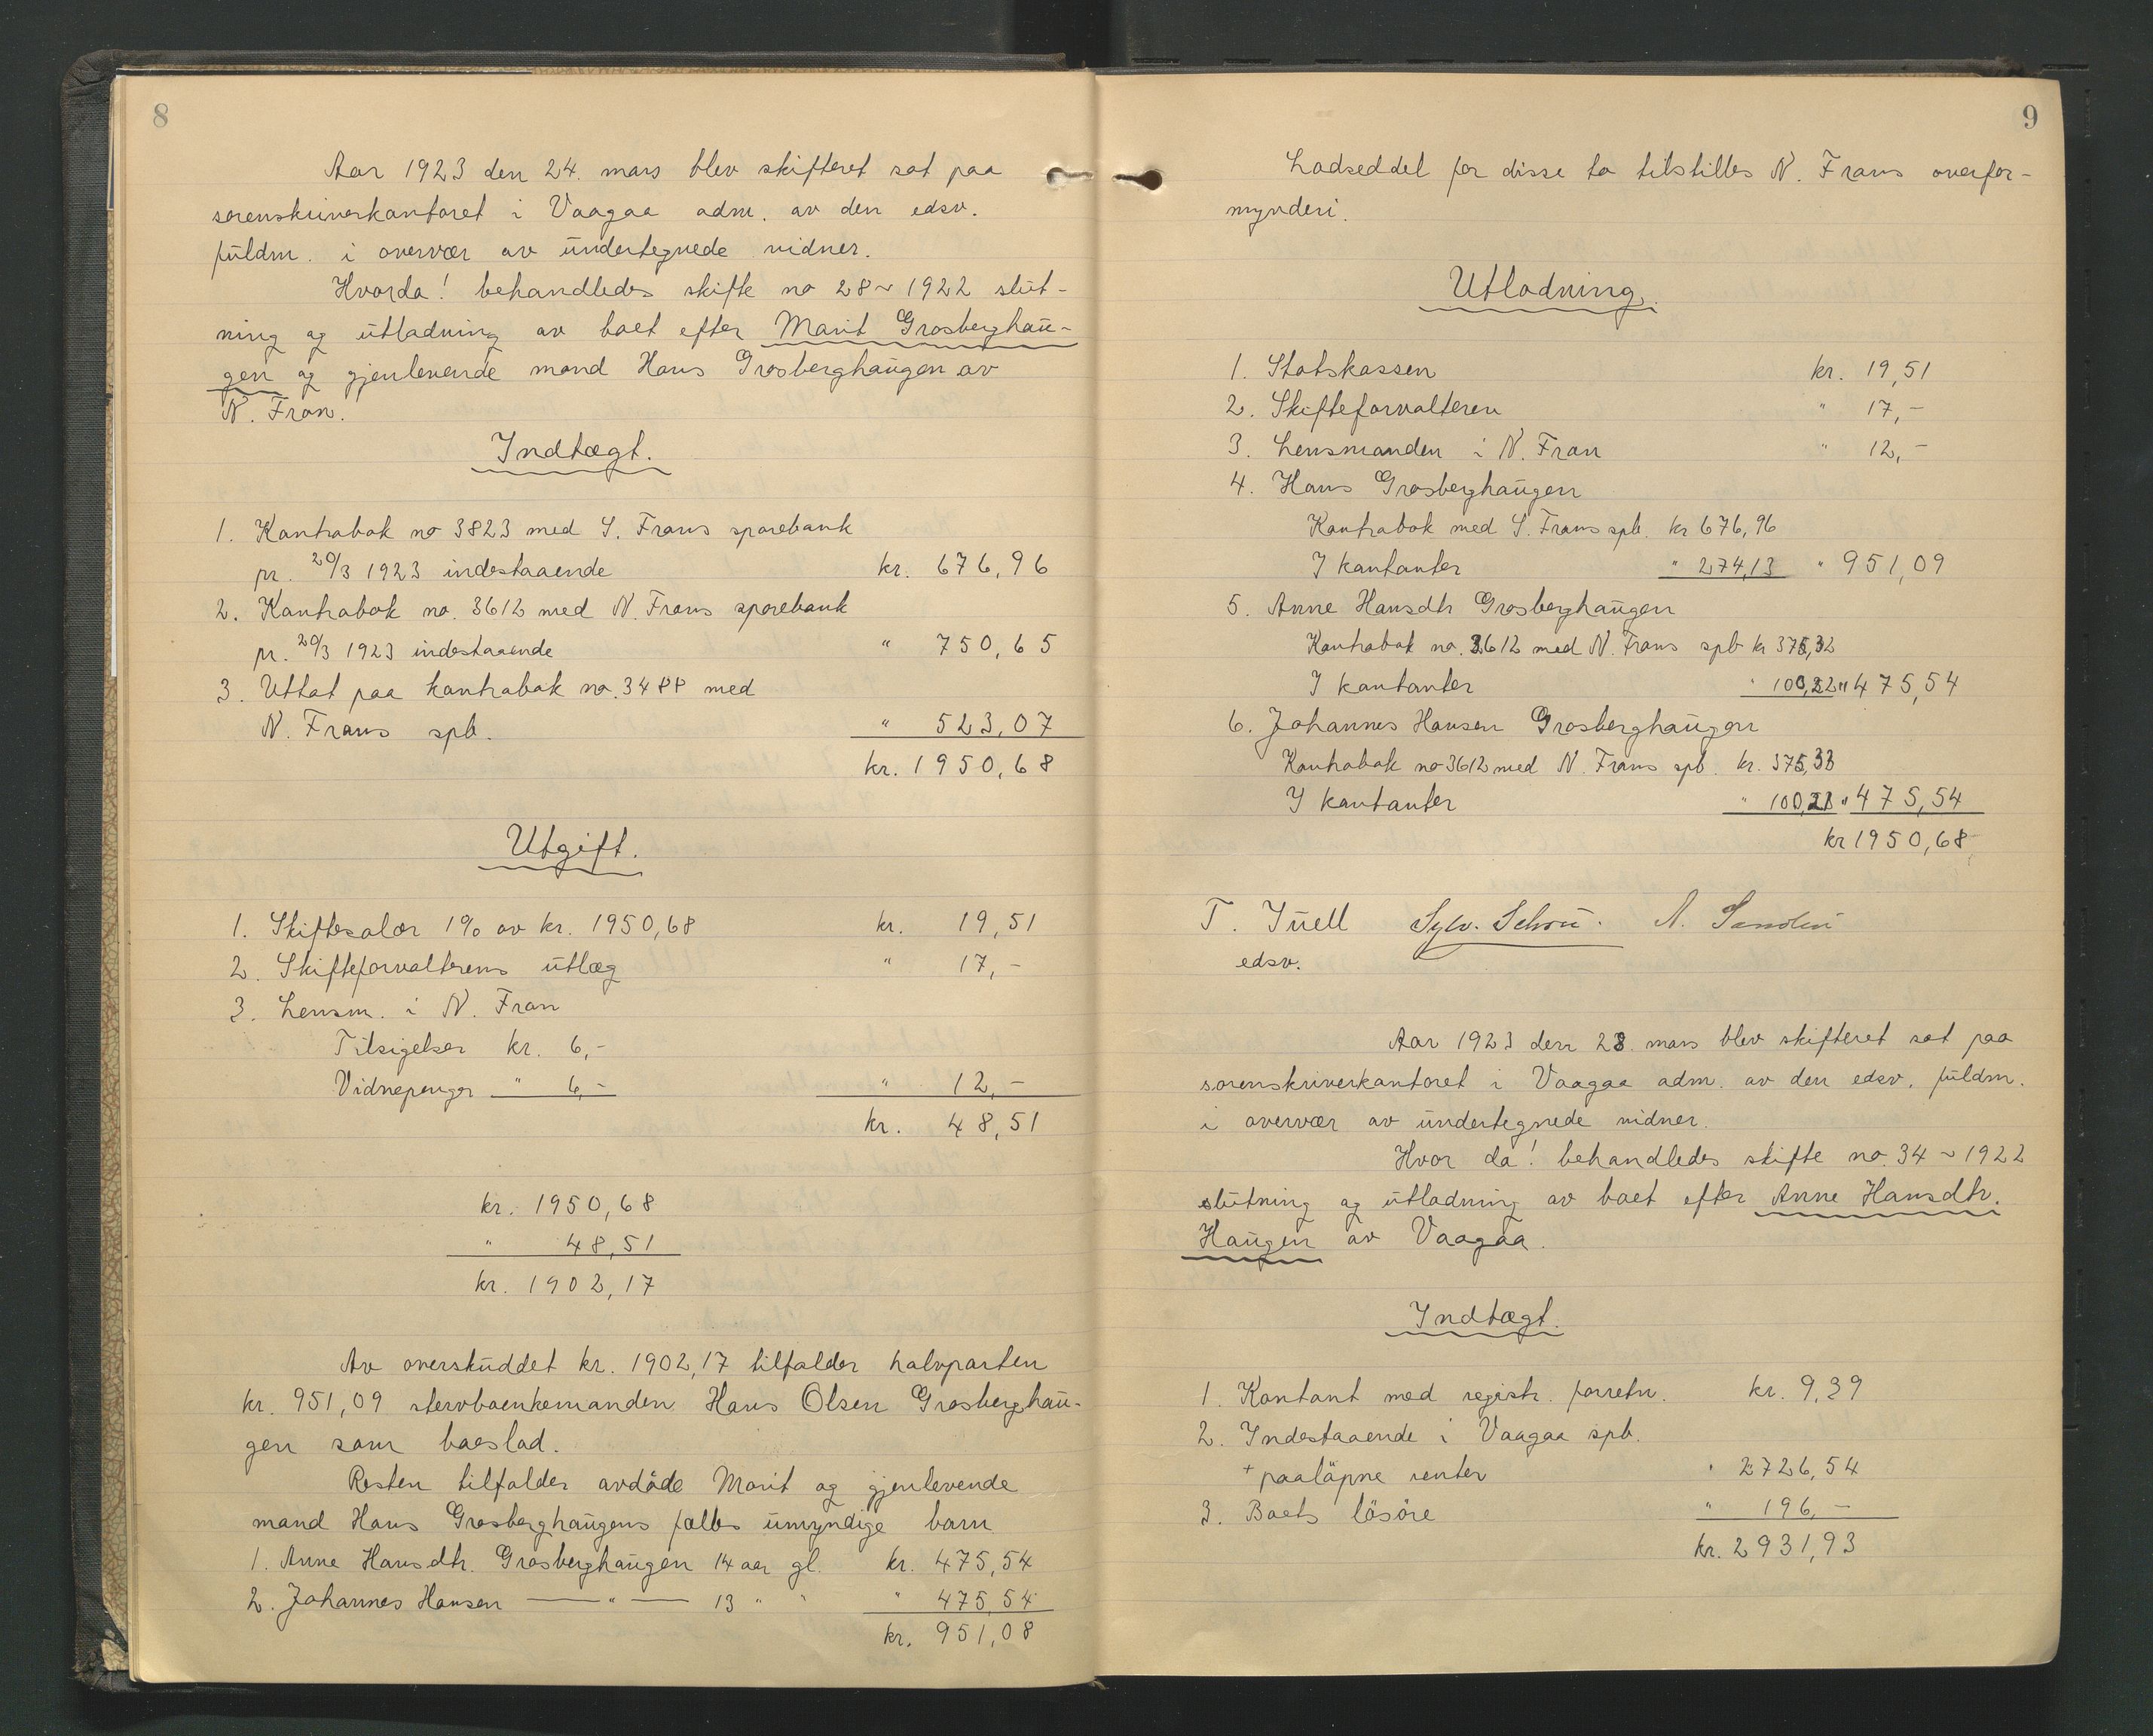 8
Aar 1923 den 24. mars blev skifteret sat paa
sorenskriverkontoret i Vaagaa adm. av den edsv.
fuldm. i overvær av undertegnede vidner.
Hvorda! behandledes skifte no 28 ~ 1922 slut-
ning og utlodning av boet efter Marit Grosberghau-
gen og gjenlevende mand Hans Grosberghaugen av
N. Fron.
Indtægt.
1. Kontrabok no 3823 med S. Frons sparebank
pr. 20/3 1923 indestaaende kr. 676,96
2. Kontrabok no. 3612 med N. Frons sparebank
pr. 20/3 1923 indestaaende " 750,65
3. Uttat paa kontrabok no. 3488 med
N. Frons spb. " 523,07
kr. 1950,68
Utgift.
1. Skiftesalær 1% av kr. 1950,68 kr. 19,51
2. Skifteforvalterens utlæg " 17,-
3. Lensm. i N. Fron
Tilsigelser kr. 6,-
Vidnepenger " 6,- " 12,-
kr. 48,51
kr. 1950,68
" 48,51
kr. 1902,17
Av overskuddet kr. 1902,17 tilfalder halvparten
kr. 951,09 stervboenkemanden Hans Olsen Grosberghau-
gen som boeslod.
Resten tilfalder avdöde Marit og gjenlevende
mand Hans Grosberghaugens fælles umyndige barn
1. Anne Hansdtr. Grosberghaugen 14 aar gl. kr. 475,54
2. Johannes Hansen — " — 13 " " " 475,54
kr. 951,08
9
Lodseddel for disse to tilstilles N. Frons overfor-
mynderi.
Utlodning.
1. Statskassen kr. 19,51
2. Skifteforvalteren " 17,-
3. Lensmanden i N. Fron " 12,-
4. Hans Grosberghaugen
Kontrabok med S. Frons spb. kr 676,96
I kontanter " 274,13 " 951,09
5. Anne Hansdtr Grosberghaugen
Kontrabok no. 3612 med N. Frons spb kr 375,32
I kontanter " 100,22 " 475,54
6. Johannes Hansen Grosberghaugen
Kontrabok no 3612 med N. Frons spb. kr. 375,33
I kontanter " 100,21 " 475,54
kr 1950,68
T. Juell Sylv. Schou. A.
edsv.
Aar 1923 den 28. mars blev skifteret sat paa
sorenskriverkontoret i Vaagaa adm. av den edsv. fuldm.
i overvær av undertegnede vidner.
Hvor da! behandledes skifte no. 34 ~ 1922
slutning og utlodning av boet efter Anne Hansdtr.
Haugen av Vaagaa.
Indtægt.
1. Kontant med registr. forretn. kr. 9,39
2. Indestaaende i Vaagaa spb.
+ paaløpne renter " 2726,54
3. Boets lösöre " 196,-
kr. 2931,93